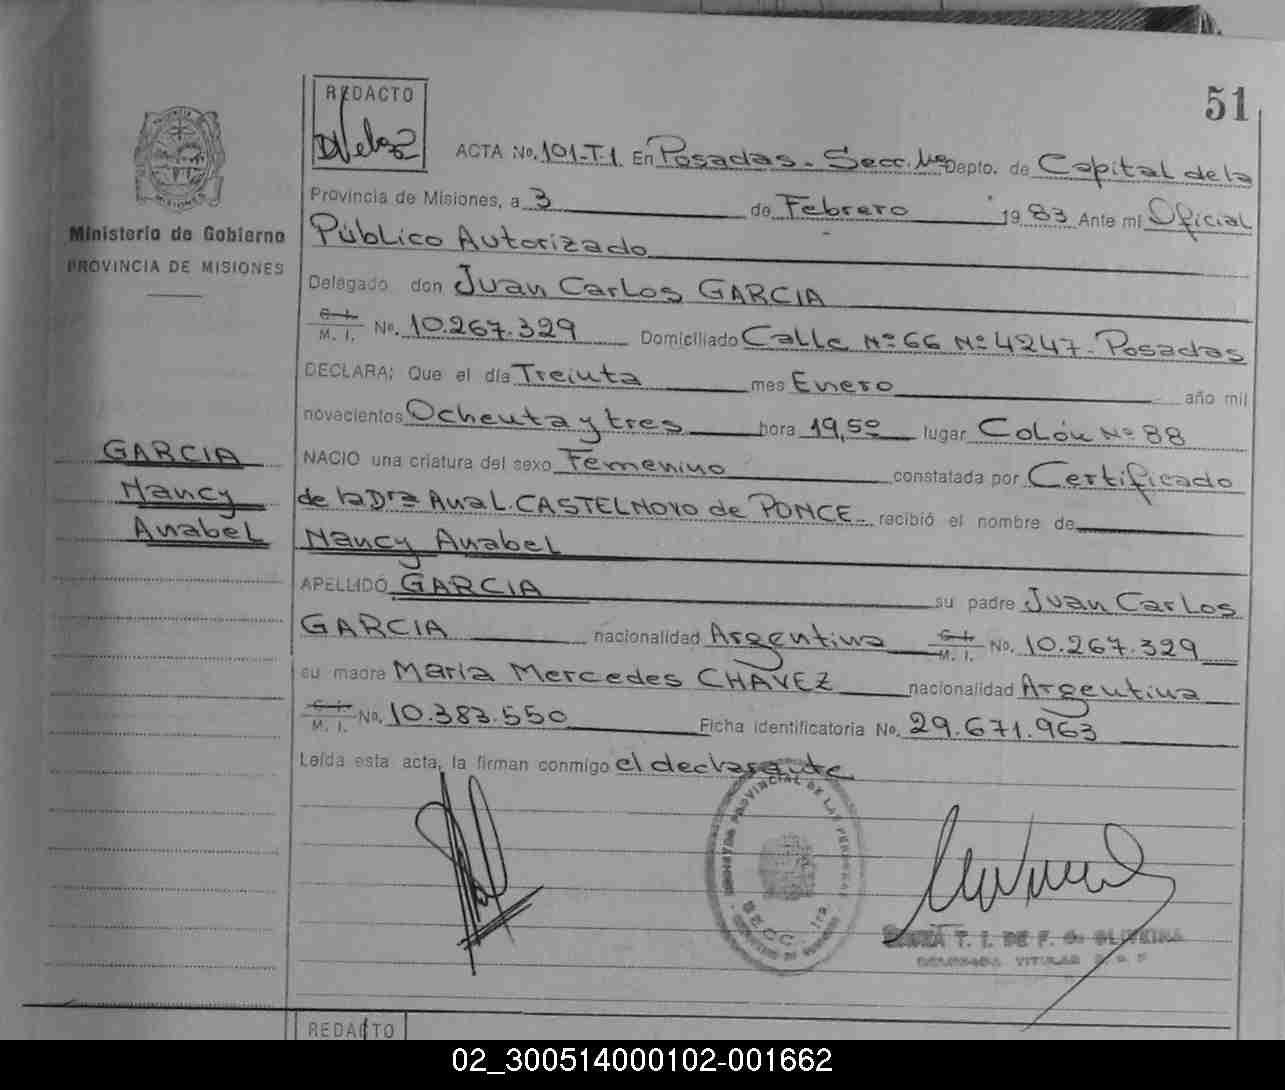 51
REDACTO
ACTA No. 101-T-1. En Posadas - Secc. 1ra Depto. de Capital de la
Provincia de Misiones, a 3 de Febrero 1983 Ante mi Oficial
Público Autorizado
Delegado don Juan Carlos GARCIA
C. I.
M. I. No. 10.267.329 Domiciliado Calle Nº 66 Nº 4247 - Posadas
DECLARA: Que el día Treinta mes Enero año mil
novecientos Ochenta y tres hora 19,50 lugar Colón Nº 88
NACIO una criatura del sexo Femenino constatada por Certificado
de la Dra Ana L. CASTELNOVO de PONCE recibió el nombre de
Nancy Anabel
APELLIDO GARCIA su padre Juan Carlos
GARCIA nacionalidad Argentina C. I. M. I. No. 10.267.329
su madre María Mercedes CHAVEZ nacionalidad Argentina
C. I.
M. I. No. 10.383.550 Ficha identificatoria No. 29.671.963
Leída esta acta, la firman conmigo el declarante
Ministerio de Gobierno
PROVINCIA DE MISIONES
GARCIA
Nancy
Anabel
REGISTRO PROVINCIAL DE LAS PERSONAS
SECC. 1ra.
T. I. DE F. G. OLIVEIRA
TITULAR
REDACTO
02_300514000102-001662